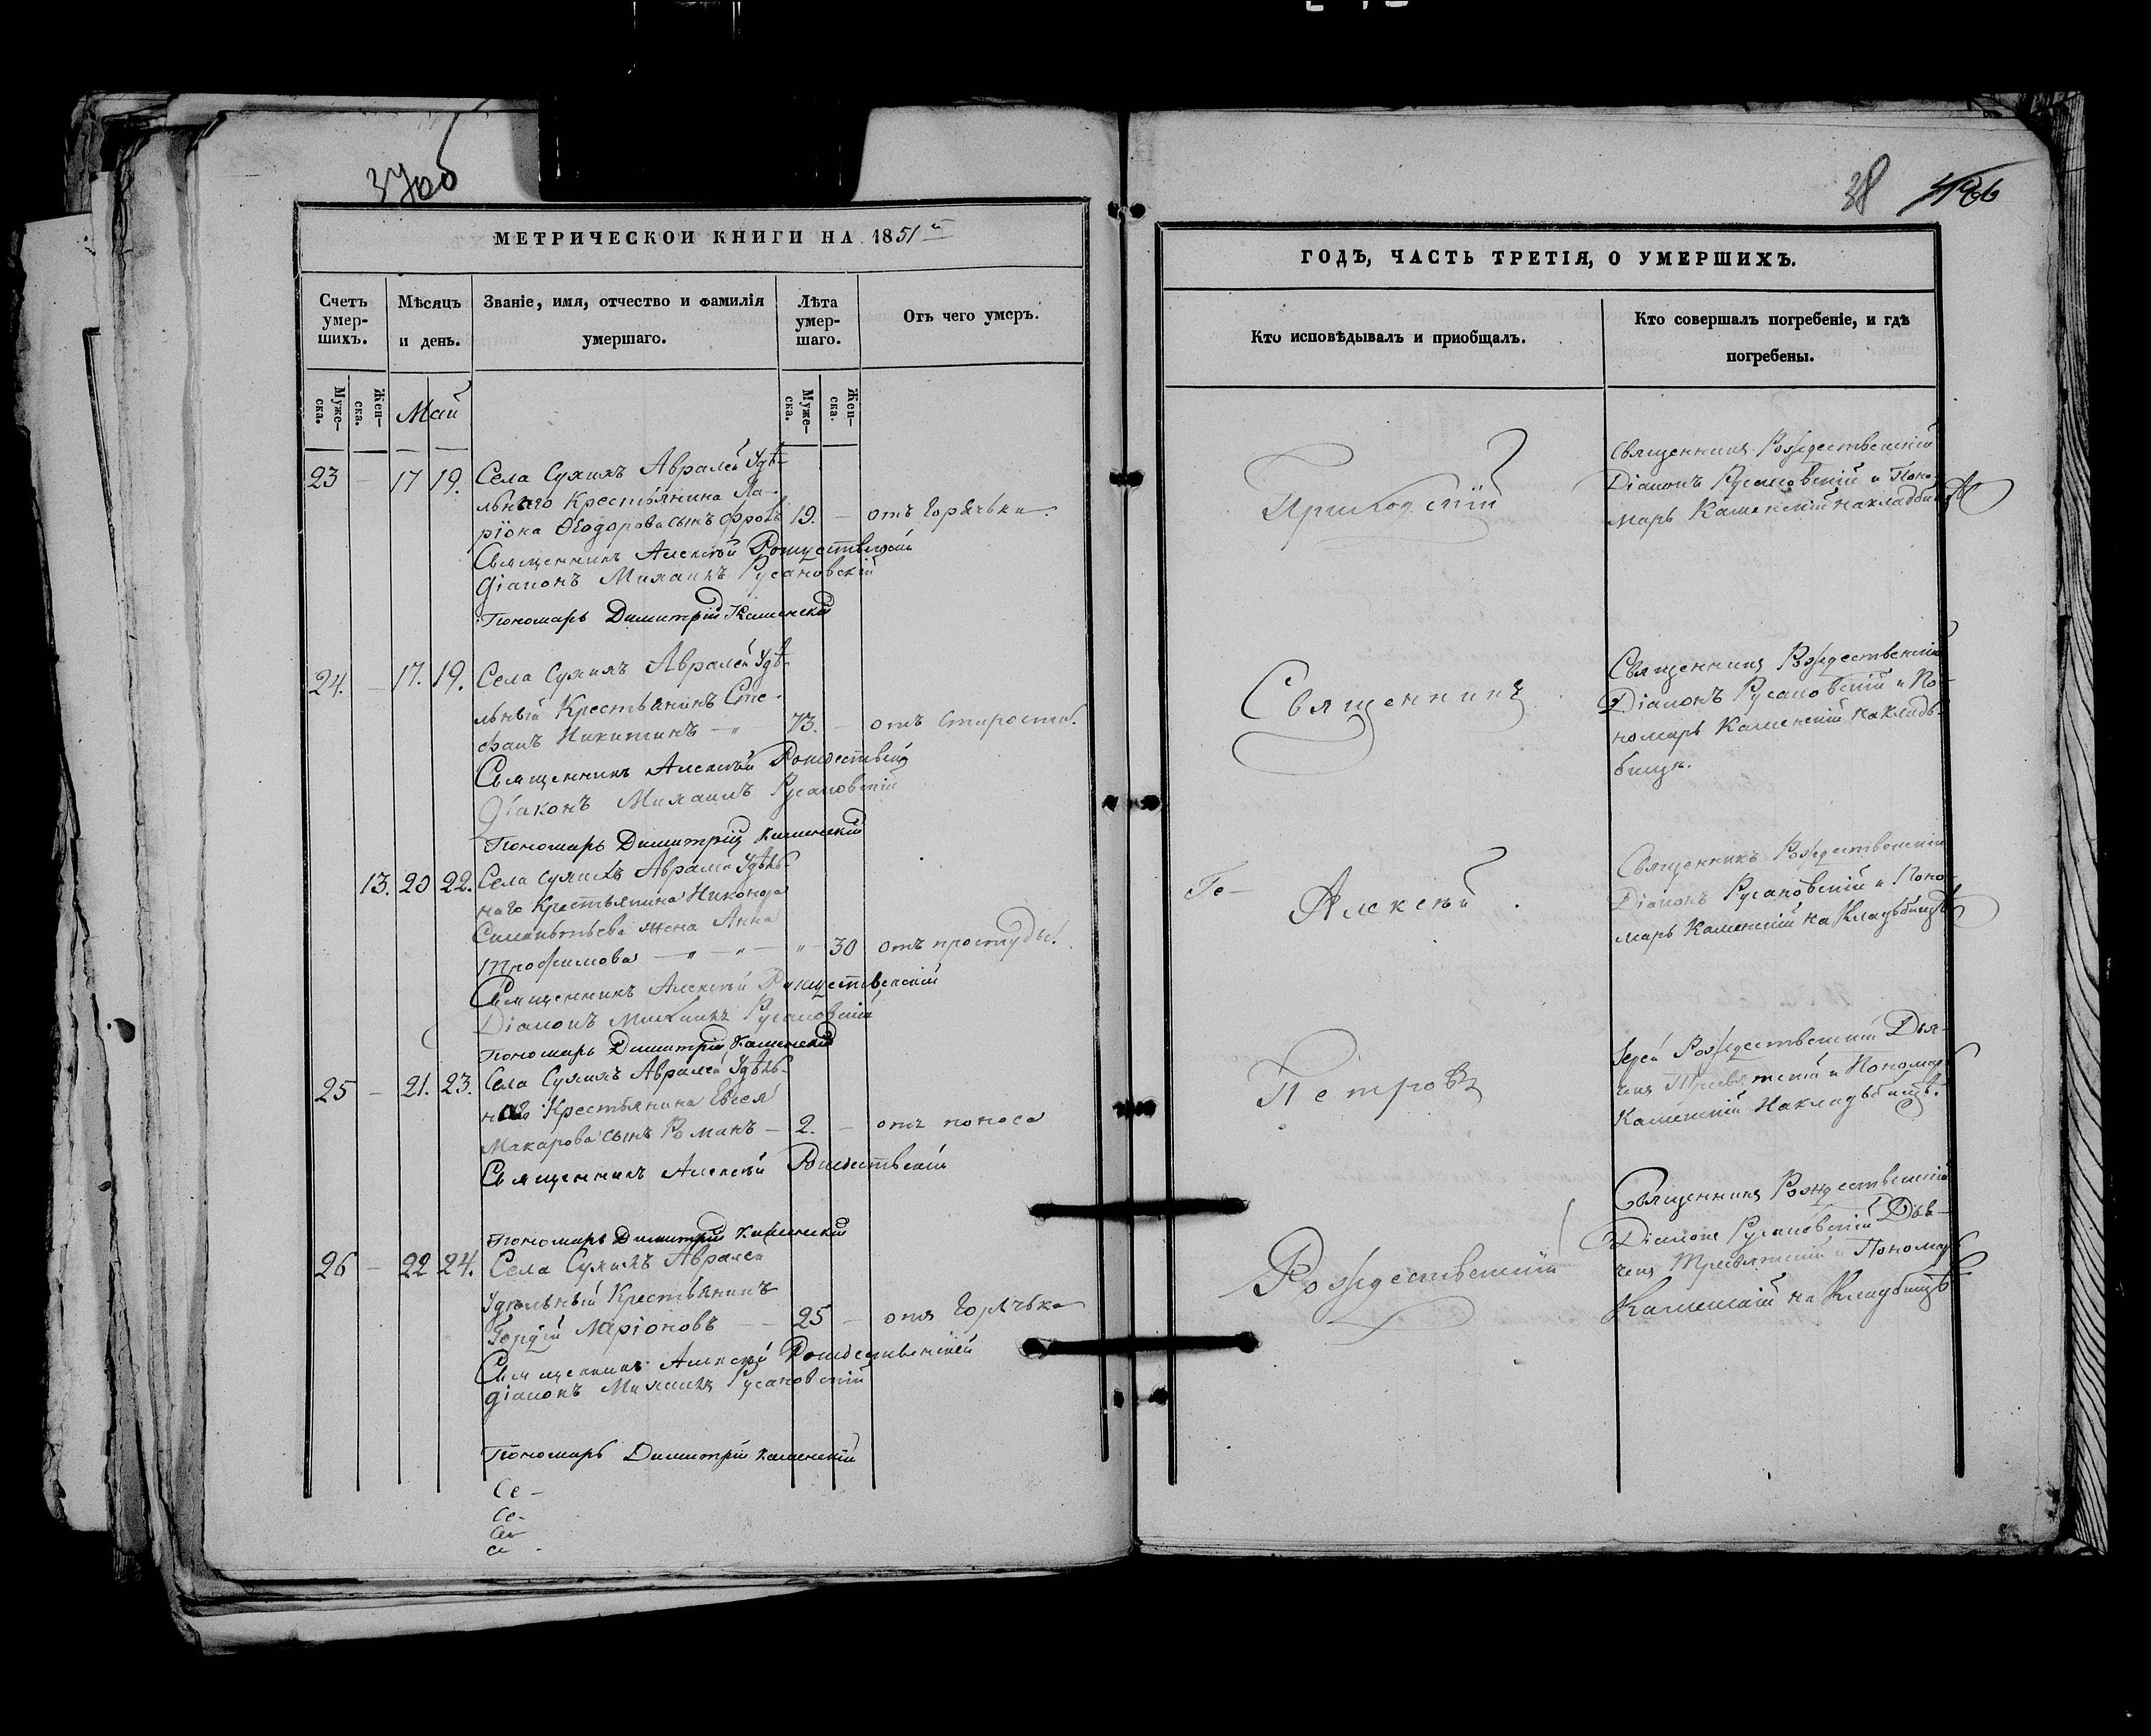 37об
МЕТРИЧЕСКОИ КНИГИ НА 1851й
Счетъ умер-шихъ.
Мѣсяцъ и день.
Званіе, имя, отчество и фамилія умершаго.
Лѣта умер-шаго.
Отъ чего умеръ.
Муже-ска.
Жен-ска.
Май
Муже-ска.
Жен-ска.
23 — 17 19. Села Сухихъ Авралей Удѣ-
льнаго Крестьянина Ла-
ріона Ѳеодорова сынъ Фролъ 19. — отъ Горячьки.
Священникъ Алексѣй Рождественскій
Діаконъ Михаилъ Русановскій
Пономарь Димитрій Каменскій
24. — 17. 19. Села Сухихъ Авралей Удѣ-
льный Крестьянинъ Сте-
фанъ Никитинъ — 73. — отъ старости.
Священникъ Алексѣй Рождественскій
Діаконъ Михаилъ Русановскій
Пономарь Димитрій Каменскій
13. 20 22. Села Сухихъ Авралей Удѣль-
наго Крестьянина Никонора
жена Анна
Трофимова — „ — „ — „ — 30 отъ простуды.
Священникъ Алексѣй Рождественскій
Діаконъ Михаилъ Русановскій
Пономарь Димитрій Каменскій
25 — 21. 23. Села Сухихъ Авралей Удѣль-
наго Крестьянина Евсея
Макарова сынъ Романъ — 2. — отъ поноса
Священникъ Алексѣй Рождественскій
Пономарь Димитрій Каменскій
26 — 22 24. Села Сухихъ Авралей
Удѣльный Крестьянинъ
Гордѣй Ларіоновъ — 25 — отъ Горячька
Священникъ Алексѣй Рождественскій
Діаконъ Михаилъ Русановскій
Пономарь Димитрій Каменскій
Се-
Се-
Се-
Се
38
ГОДЪ, ЧАСТЬ ТРЕТІЯ, О УМЕРШИХЪ.
Кто исповѣдывалъ и пріобщалъ.
Кто совершалъ погребеніе, и гдѣ погребены.
Приходскій
Священникъ Рождественскій
Діаконъ Русановскій и Поно-
марь Каменскій на кладбищѣ
Священникъ
Священникъ Рождественскій
Діаконъ Русановскій и По-
номарь Каменскій на кладь-
бищѣ.
Ге-
Алексѣй.
Священникъ Рождественскій
Діаконъ Русановскій и Поно-
марь Каменскій на Кладьбищѣ
Петровъ
Іерей Рождественскій Дья-
чекъ Тресвятскій и Пономарь
Каменскій на кладьбищѣ.
Рождественскій
Священникъ Рождественскій
Діаконъ Русановскій Дья-
чекъ Тресвятскій и Пономарь
Каменскій на Кладбищѣ